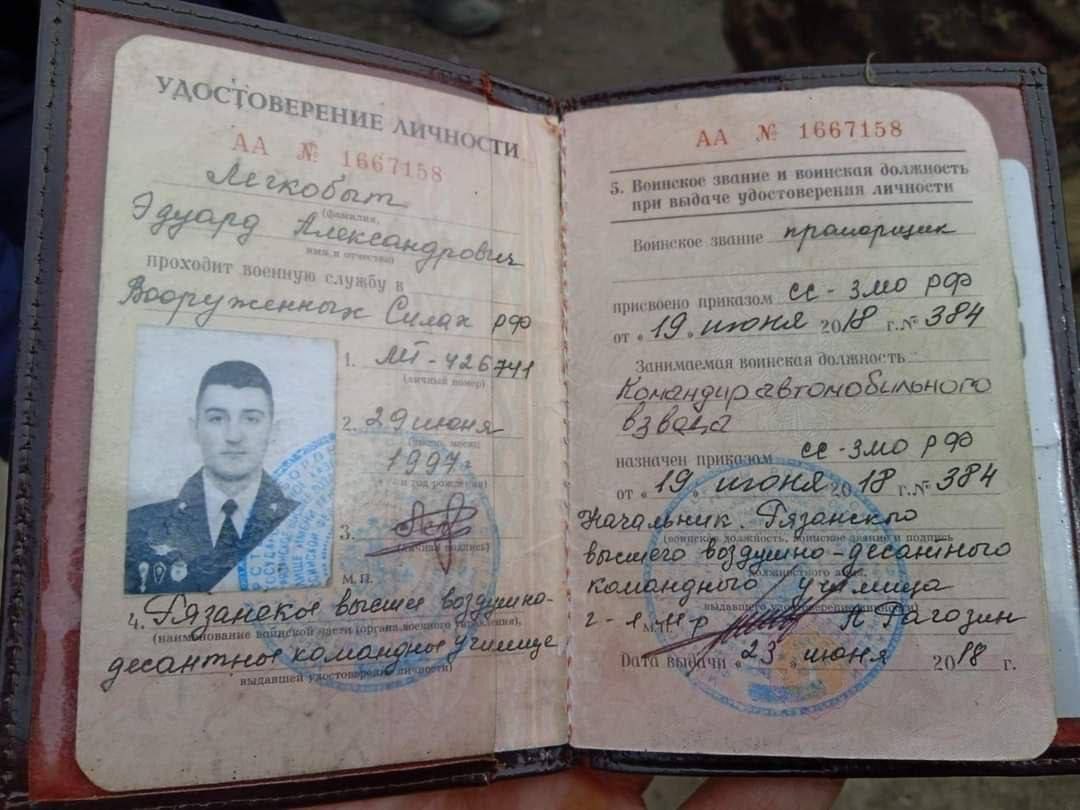 УДОСТОВЕРЕНИЕ ЛИЧНОСТИ
АА № 1667158
Легкобыт
(фамилия,
Эдуард Александрович
имя и отчество)
проходит военную службу в
Вооруженных Силах РФ
1.
(личный номер)
2. 29 июня
(число, месяц
1997г.
и год рождения)
3.
(личная подпись)
М.П.
4. Рязанское высшее воздушно-
(наименование воинской части (органа военного управления),
десантное командное училище
выдавшей удостоверение личности)
АА № 1667158
5. Воинское звание и воинская должность
при выдаче удостоверения личности
Воинское звание прапорщик
присвоено приказом сс-ЗМО РФ
от « 19 » июня 2018 г. № 384
Занимаемая воинская должность
Командир автомобильного
взвода
назначен приказом сс-ЗМО РФ
от « 19 » июня 2018 г. № 384
Начальник Рязанского
(воинская должность, воинское звание и подпись
высшего воздушно-десантного
должностного лица,
командного училища
выдавшего удостоверение личности)
г-л м-р А Рагозин
М.П.
Дата выдачи « 23 » июня 2018 г.